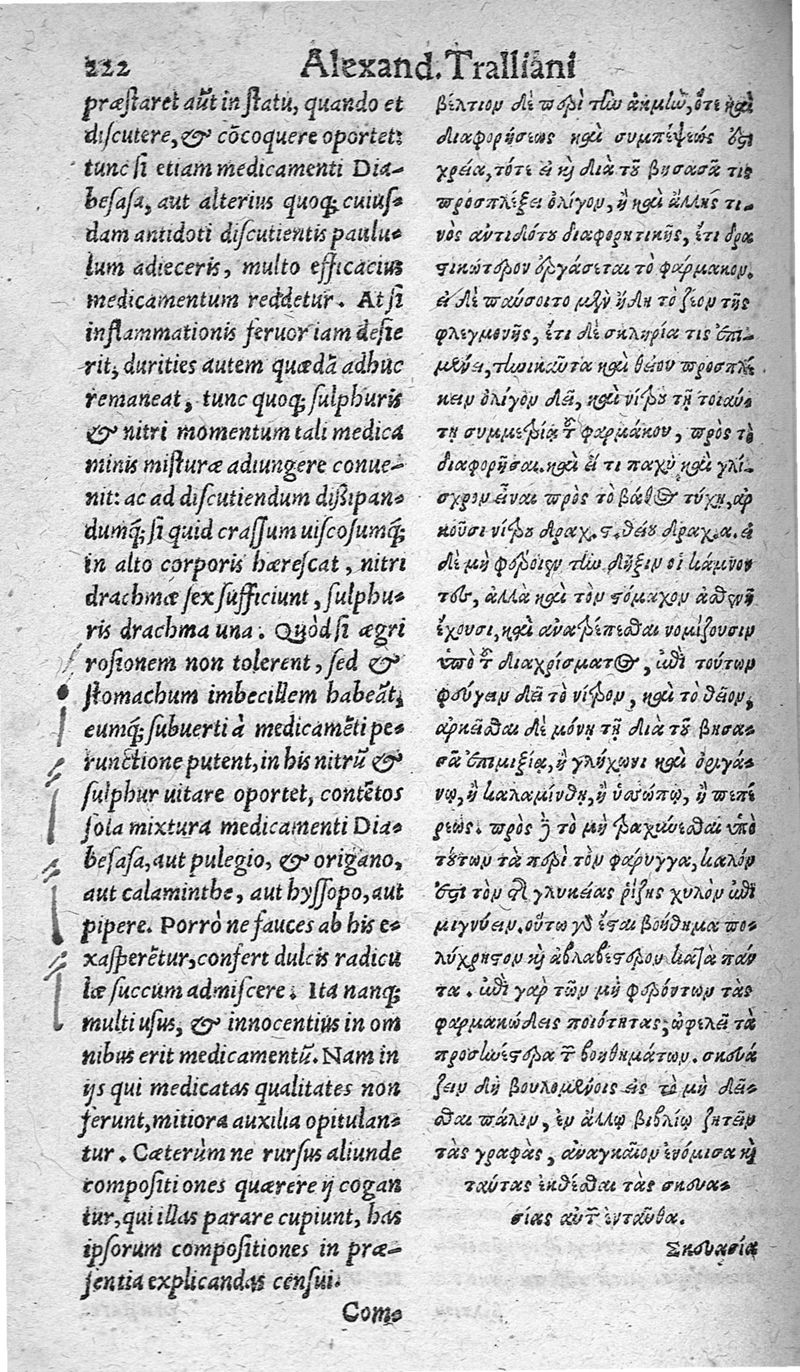 222
Alexand. Tralliani
præstaret aũt in statu, quando et
discutere, & cõcoquere oportet:
tunc si etiam medicamenti Dia-
besasa, aut alterius quoq; cuius-
dam antidoti discutientis paulu-
lum adieceris, multo efficacius
medicamentum reddetur. At si
inflammationis feruor iam desie
rit, durities autem quædã adhuc
remaneat, tunc quoq; sulphuris
& nitri momentum tali medica
minis misturæ adiungere conue-
nit: ac ad discutiendum dißipan-
dumq; si quid crassum uiscosumq;
in alto corporis hærescat, nitri
drachmæ sex sufficiunt, sulphu-
ris drachma una. Quòd si ægri
rosionem non tolerent, sed &
stomachum imbecillem habeãt,
eumq; subuerti à medicamẽti pe-
runctione putent, in his nitrũ &
sulphur uitare oportet, contẽtos
sola mixtura medicamenti Dia-
besasa, aut pulegio, & origano,
aut calaminthe, aut hyssopo, aut
pipere. Porrò ne fauces ab his e-
xasperẽtur, confert dulcis radicu
læ succum admiscere. Ita nanq;
multi usus, & innocentius in om
nibus erit medicamentũ. Nam in
ijs qui medicatas qualitates non
ferunt, mitiora auxilia opitulan-
tur. Cæterùm ne rursus aliunde
compositiones quærere ij cogan
tur, qui illas parare cupiunt, has
ipsorum compositiones in præ-
sentia explicandas censui.
Com-
βέλτιον δὲ περὶ τὴν ἀκμὴν, ὅτε καὶ
διαφορήσεως καὶ συμπέψεως ἐστὶ
χρεία, τότε εἰ καὶ διὰ τοῦ βησασᾶ τις
προσπλέξει ὀλίγον, ἢ καὶ ἄλλης τι-
νὸς ἀντιδότου διαφορητικῆς, ἔτι δρα
στικώτερον ἐργάσεται τὸ φάρμακον.
εἰ δὲ παύσοιτο μὲν ἤδη τὸ ζέον τῆς
φλεγμονῆς, ἔτι δὲ σκληρία τις ἐπι-
μένει, τηνικαῦτα καὶ θείου προσπλέ
κειν ὀλίγον δεῖ, καὶ νίτρου τῇ τοιαύ-
τῃ συμμετρίᾳ τῶν φαρμάκον, πρὸς τὸ
διαφορῆσαι. καὶ εἴ τι παχὺ καὶ γλί-
σχρον εἶναι πρὸς τὸ βάθος τύχῃ, ἀρ
κοῦσι νίτρου δραχ. ϛ. θείου δραχ. α. εἰ
δὲ μὴ φέροιεν τὴν δῆξιν οἱ κάμνον
τες, ἀλλὰ καὶ τὸν στόμαχον ἀσθενῆ
ἔχουσι, καὶ ἀνατρέπεσθαι νομίζουσιν
ὑπὸ τοῦ διαχρίσματος, ἐπὶ τούτων
φεύγειν δεῖ τὸ νίτρον, καὶ τὸ θεῖον,
ἀρκεῖσθαι δὲ μόνῃ τῇ διὰ τοῦ βησα-
σᾶ ἐπιμιξίᾳ, ἢ γλήχωνι καὶ ὀριγά-
νῳ, ἢ καλαμίνθῃ, ἢ ὑσσώπῳ, ἢ πεπέ
ρεως. πρὸς δὲ τὸ μὴ τραχύνεσθαι ὑπὸ
τούτων τὰ περὶ τὸν φάρυγγα, καλόν
ἐστι τὸν τῆς γλυκείας ῥίζης χυλὸν ἐπι
μιγνύειν. οὕτω γὰρ ἔσται βοήθημα πο-
λύχρηστον καὶ ἀβλαβέστερον κατὰ πάν
τα. ἐπὶ γὰρ τῶν μὴ φερόντων τὰς
φαρμακώδεις ποιότητας, ὠφελεῖ τὰ
προσηνέστερα τῶν βοηθημάτων. σκευά
ζειν δὴ βουλομένοις εἰς τὸ μὴ δεῖ-
σθαι πάλιν, ἐν ἄλλῳ βιβλίῳ ζητεῖν
τὰς γραφὰς, ἀναγκαῖον ἐνόμισα καὶ
ταύτας ἐκθέσθαι τὰς σκευα-
σίας αὐτῶν ἐνταῦθα.
Σκευασία